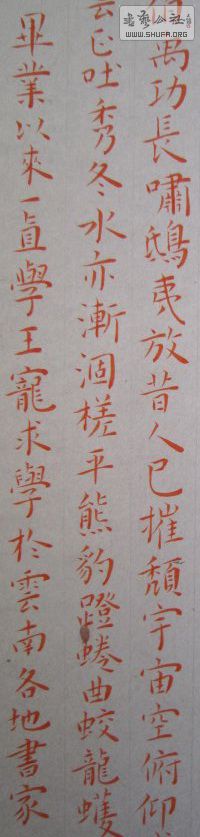 書藝公社
WWW.SHUFA.ORG
禹功長嘯鴟夷放昔人已摧頹宇宙空俯仰
正吐秀冬水亦漸涸槎平熊豹蹬蜷曲蛟龍蠖
畢業以來一直學王寵求學於雲南各地書家